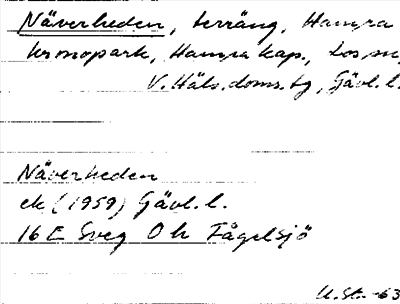 Näverheden, terräng, Hamra
kronopark, Hamra kap., Los sn,
V. Häls. doms. tg, Gävl. l.
Näverheden
ek (1959) Gävl. l.
16 E Sveg 0 h Fågelsjö
U. Sn. -63